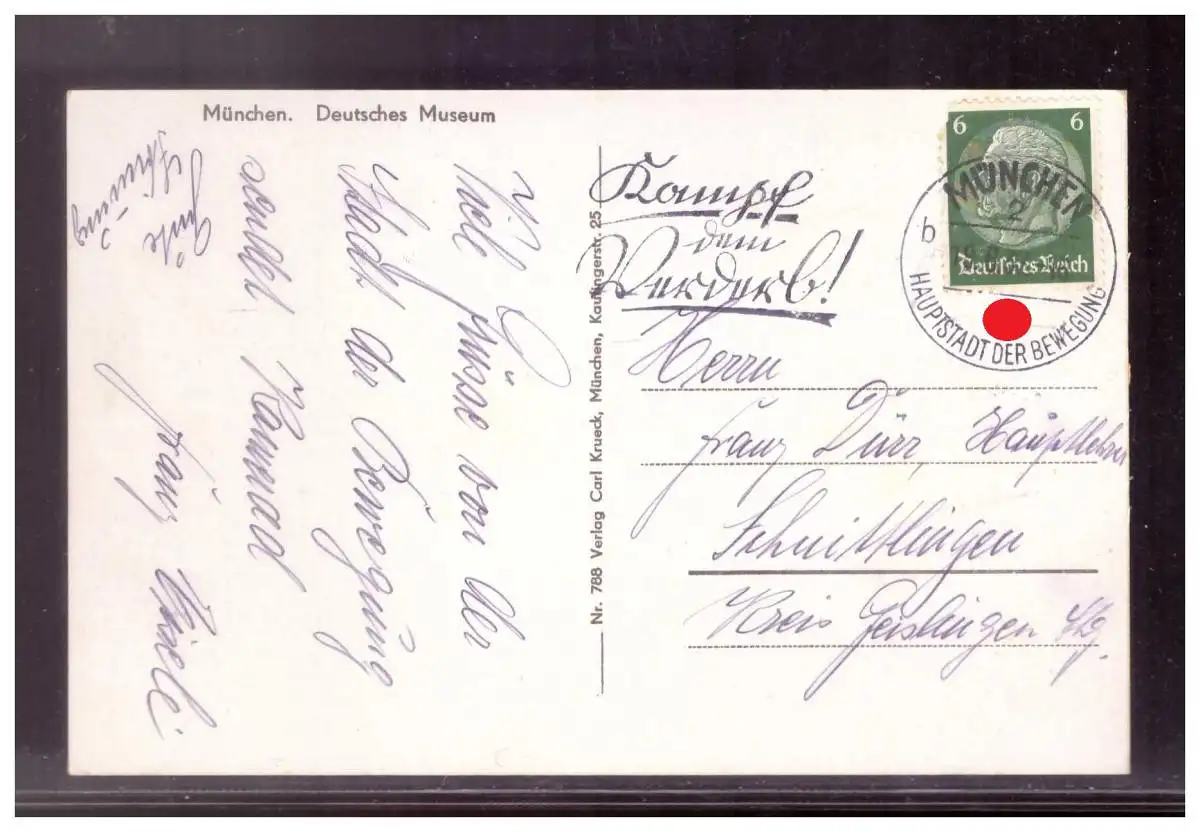 München. Deutsches Museum
Viele Grüsse von der
Stadt der Bewegung
sendet Kamerad
Gute
Nr. 788 Verlag Carl Krueck, München, Kaufingerstr. 25
Kampf
dem
Verderb!
6 6
Deutsches Reich
MÜNCHEN
2
b
HAUPTSTADT DER BEWEGUNG
Herrn
Franz Dürr, Hauptlehrer
Schnittlingen
Kreis Geislingen Stg.